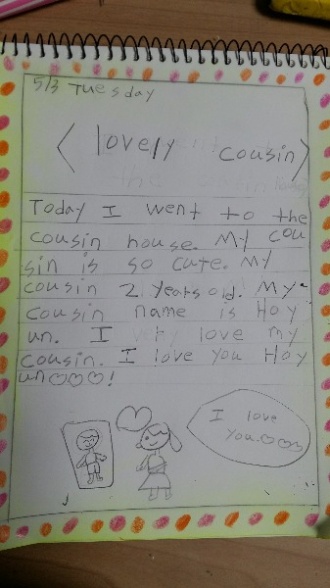 5/3 Tuesday
< lovely cousin >
Today I went to the
cousin house. My cou
sin is so cute. My
cousin 2 years old. My
cousin name is Hoy
un. I very love my
cousin. I love you Hoy
un♡♡♡!
I love
you.♡♡♡